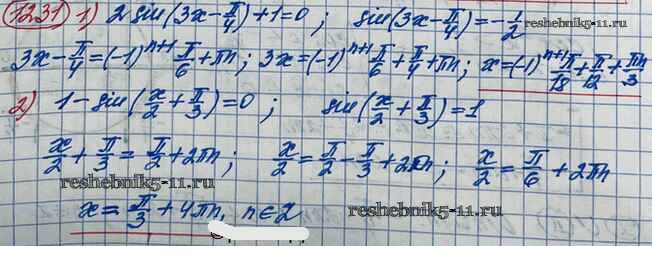 1231 1) 2sin(3x-π/4)+1=0; sin(3x-π/4)=-1/2
3x-π/4=(-1)^{n+1} π/6+πn; 3x=(-1)^{n+1} π/6+π/4+πn; x=(-1)^{n+1} π/18+π/12+πn/3
2) 1-sin(x/2+π/3)=0; sin(x/2+π/3)=1
x/2+π/3=π/2+2πn; x/2=π/2-π/3+2πn; x/2=π/6+2πn
reshebnik5-11.ru
x=π/3+4πn, n∈Z reshebnik5-11.ru